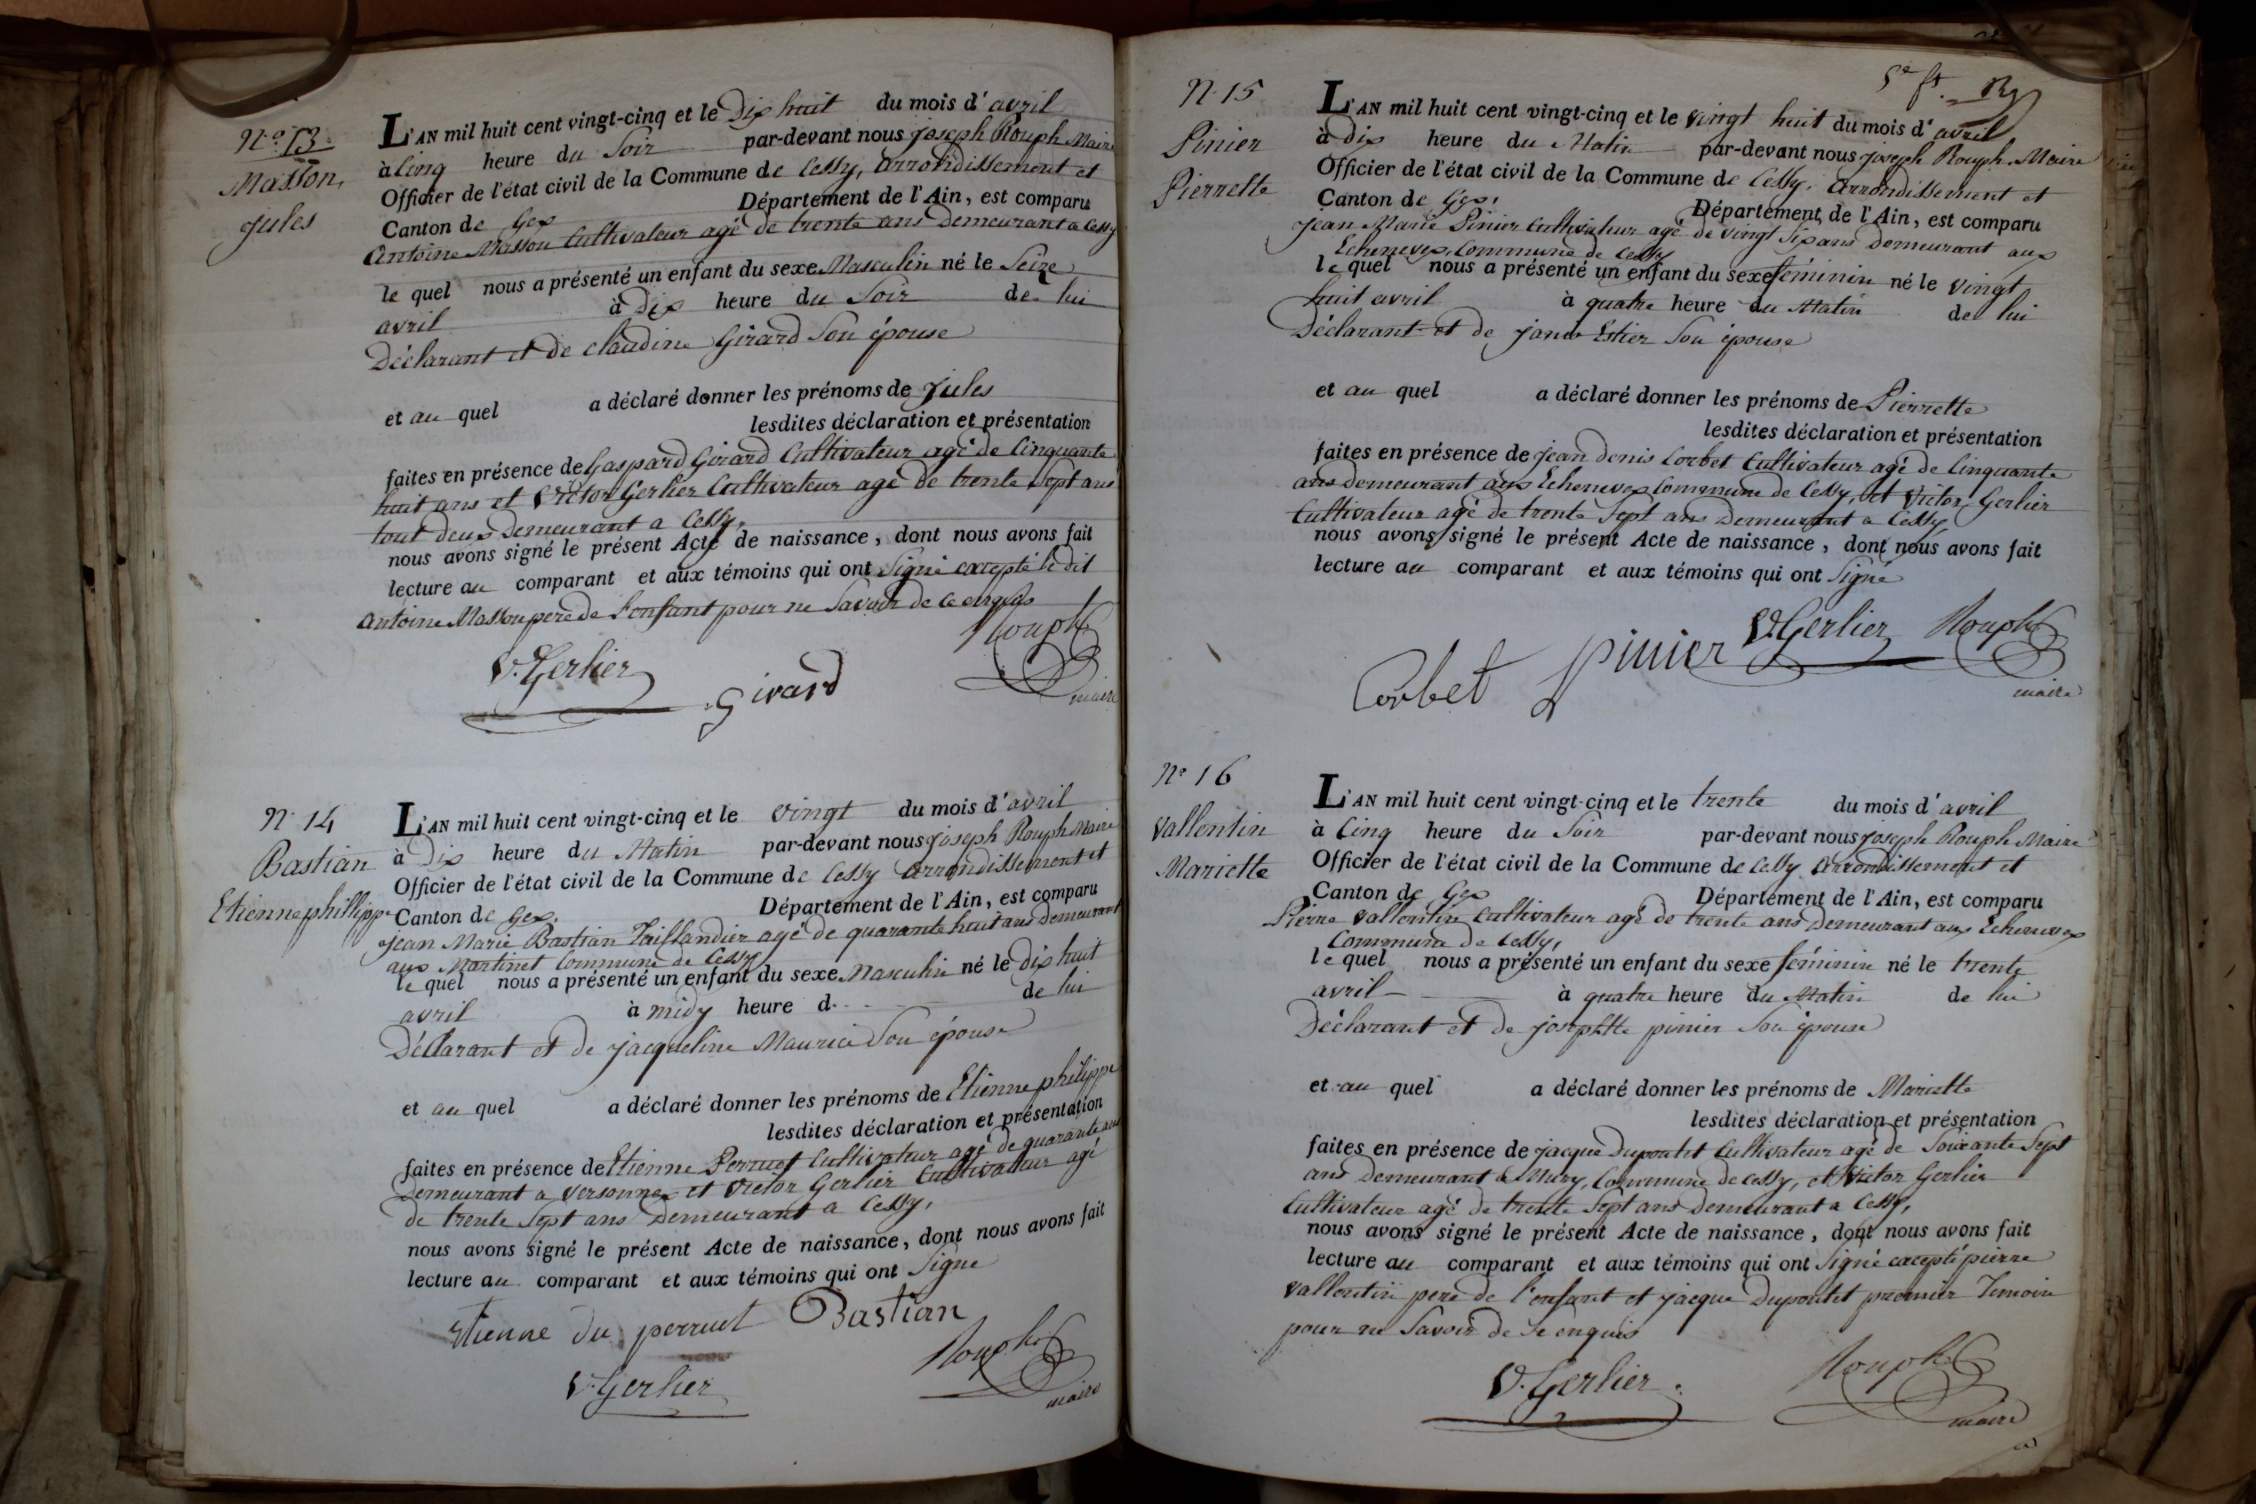 N.o 13.
Masson,
jules
L'AN mil huit cent vingt-cinq et le Dix huit du mois d'avril
à Cinq heure du Soir par-devant nous joseph Rouph Maire
Officier de l'état civil de la Commune de Cessy, arrondissement et
Canton de Gex Département de l'Ain, est comparu
antoine Masson Cultivateur agé de trente ans Demeurant a Cessy
le quel nous a présenté un enfant du sexe Masculin né le Seize
avril à Dix heure du Soir de lui
Déclarant et de claudine Girard Son épouse
et au quel a déclaré donner les prénoms de jules
lesdites déclaration et présentation
faites en présence de Gaspard Girard Cultivateur agé de Cinquante
huit ans et Victor Gerlier Cultivateur agé de trente Sept ans
tout deux Demeurant a Cessy,
nous avons signé le présent Acte de naissance, dont nous avons fait
lecture au comparant et aux témoins qui ont Signé excepté le dit
antoine Masson pere de l'enfant pour ne Savoir de ce enquis
V. Gerlier Girard Rouph
maire
N. 14
Bastian
Etienne phillippe
L'AN mil huit cent vingt-cinq et le vingt du mois d'avril
à Dix heure du Matin par-devant nous joseph Rouph Maire
Officier de l'état civil de la Commune de Cessy arrondissement et
Canton de Gex. Département de l'Ain, est comparu
jean Marie Bastian Taillandier agé de quarante huit ans demeurant
aux Martinet Commune de Cessy
le quel nous a présenté un enfant du sexe Masculin né le dix huit
avril à midy heure d. de lui
Déclarant et de jacqueline Maurice Son épouse
et au quel a déclaré donner les prénoms de Etienne philippe
lesdites déclaration et présentation
faites en présence de Etienne Perruet Cultivateur agé de quarante ans
Demeurant a Versonnex et Victor Gerlier Cultivateur agé
de trente Sept ans Demeurant a Cessy,
nous avons signé le présent Acte de naissance, dont nous avons fait
lecture au comparant et aux témoins qui ont Signé
Etienne du perruet Bastian
V. Gerlier Rouph
maire
N. 15
Pinier
Pierrette
L'AN mil huit cent vingt-cinq et le vingt huit du mois d'avril
à Dix heure du Matin par-devant nous joseph Rouph Maire
Officier de l'état civil de la Commune de Cessy, arrondissement et
Canton de Gex, Département de l'Ain, est comparu
jean Marie Pinier Cultivateur agé de vingt Six ans Demeurant aux
Echenevex, Commune de Cessy
le quel nous a présenté un enfant du sexe féminin né le vingt
huit avril à quatre heure du Matin de lui
Déclarant et de jane Estier Son épouse
et au quel a déclaré donner les prénoms de Pierrette
lesdites déclaration et présentation
faites en présence de jean denis Corbet Cultivateur agé de Cinquante
ans demeurant aux Echenevex Commune de Cessy, et Victor Gerlier
Cultivateur agé de trente Sept ans Demeurant a Cessy,
nous avons signé le présent Acte de naissance, dont nous avons fait
lecture au comparant et aux témoins qui ont Signé
Corbet pinier V. Gerlier Rouph
maire
N.o 16
Vallentin
Mariette
L'AN mil huit cent vingt-cinq et le trente du mois d'avril
à Cinq heure du Soir par-devant nous joseph Rouph Maire
Officier de l'état civil de la Commune de Cessy arrondissement et
Canton de Gex Département de l'Ain, est comparu
Pierre Vallentin Cultivateur agé de trente ans Demeurant aux Echenevex
Commune de Cessy,
le quel nous a présenté un enfant du sexe féminin né le trente
avril à quatre heure du Matin de lui
Déclarant et de josephtte pinier Son épouse
et au quel a déclaré donner les prénoms de Mariette
lesdites déclaration et présentation
faites en présence de jacque Dupontet Cultivateur agé de Soixante Sept
ans Demeurant a Mury, Commune de Cessy, et Victor Gerlier
Cultivateur agé de trente Sept ans demeurant a Cessy,
nous avons signé le présent Acte de naissance, dont nous avons fait
lecture au comparant et aux témoins qui ont Signé excepté pierre
Vallentin pere de l'enfant et jacque Dupontet premier Temoin
pour ne Savoir de Se enquis
V. Gerlier. Rouph
maire